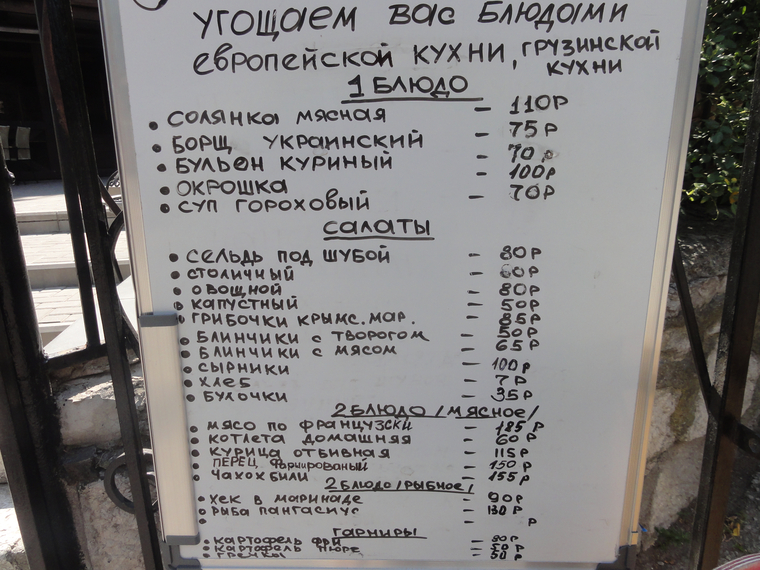 угощаем вас блюдами
европейской кухни, грузинской
кухни
1 блюдо
• солянка мясная - 110р
• борщ украинский - 75р
• бульон куриный - 70р
• окрошка - 100р
• суп гороховый - 70р
салаты
• сельдь под шубой - 80р
• столичный - 60р
• овощной - 80р
• капустный - 50р
• грибочки крымс. мар. - 85р
• блинчики с творогом - 50р
• блинчики с мясом - 65р
• сырники - 100р
• хлеб - 7р
• булочки - 35р
2 блюдо /мясное/
• мясо по французски - 185р
• котлета домашняя - 60р
• курица отбивная - 115р
• перец фаршированый - 150р
• чахохбили - 155р
2 блюдо /рыбное/
• хек в маринаде - 90р
• риба пангасиус - 130р
• - р
гарниры
• картофель фри - 80р
• картофель пюре - 50р
• гречка - 50р